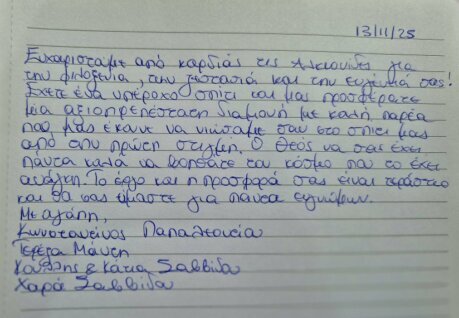 13/11/25
Ευχαριστάμε από καρδιάς τις Αλκυονίδες για
την φιλοξενία, την ζεστασιά και την ευγένειά σας!
Έχετε ένα υπέροχο σπίτι και μας προσφέρατε
μία αξιοπρεπέστατη διαμονή με καλή παρέα
που μας έκανε να νιώσαμε σαν στο σπίτι μας
από την πρώτη στιγμή. Ο Θεός να σας έχει
πάντα καλά να βοηθάτε τον κόσμο που το έχει
ανάγκη. Το έργο και η προσφορά σας είναι τεράστιο
και θα σας είμαστε για πάντα ευγνώμων.
Με αγάπη,
Κωνσταντίνος Παπαλεοντίου
Τερέζα Μάντη
& Κάτια Σαββίδη
Χαρά Σαββίδου